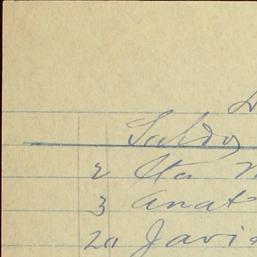 Saldo
2 Sta
3 Anat
20 Javi